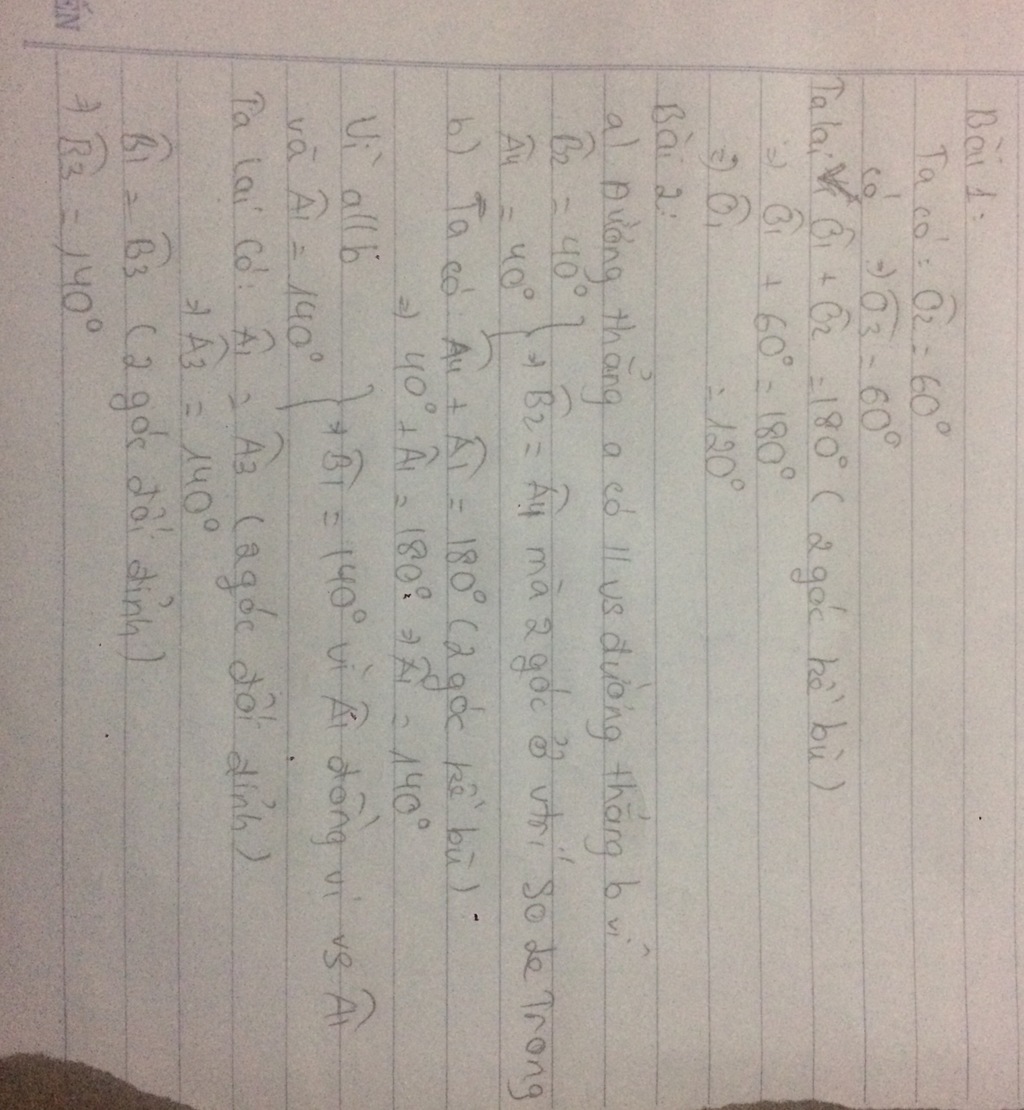 Bài 1:
Ta có: Ô2 = 60°
có ⇒ Ô3 = 60°
Ta lại Ô1 + Ô2 = 180° ( 2 góc kề bù )
⇒ Ô1 + 60° = 180°
⇒ Ô1 = 120°
Bài 2:
a) Đường thẳng a có // vs đường thẳng b vì
B̂2 = 40° } ⇒ B̂2 = Â4 mà 2 góc ở vtrí so le Trong
Â4 = 40°
b) Ta có: Â4 + Â1 = 180° ( 2 góc kề bù )
⇒ 40° + Â1 = 180° ⇒ Â1 = 140°
Vì a//b } ⇒ B̂1 = 140° vì Â1 đồng vị vs Â1
và Â1 = 140°
Ta lại có: Â1 = Â3 ( 2 góc đối đỉnh )
⇒ Â3 = 140°
B̂1 = B̂3 ( 2 góc đối đỉnh )
⇒ B̂3 = 140°